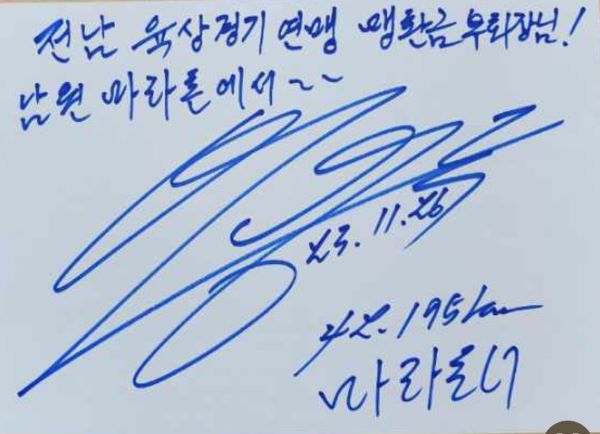 전남 육상경기연맹 맹환금 부회장님!
남원 마라톤에서~~
23.11.26
42.195km
마라토너